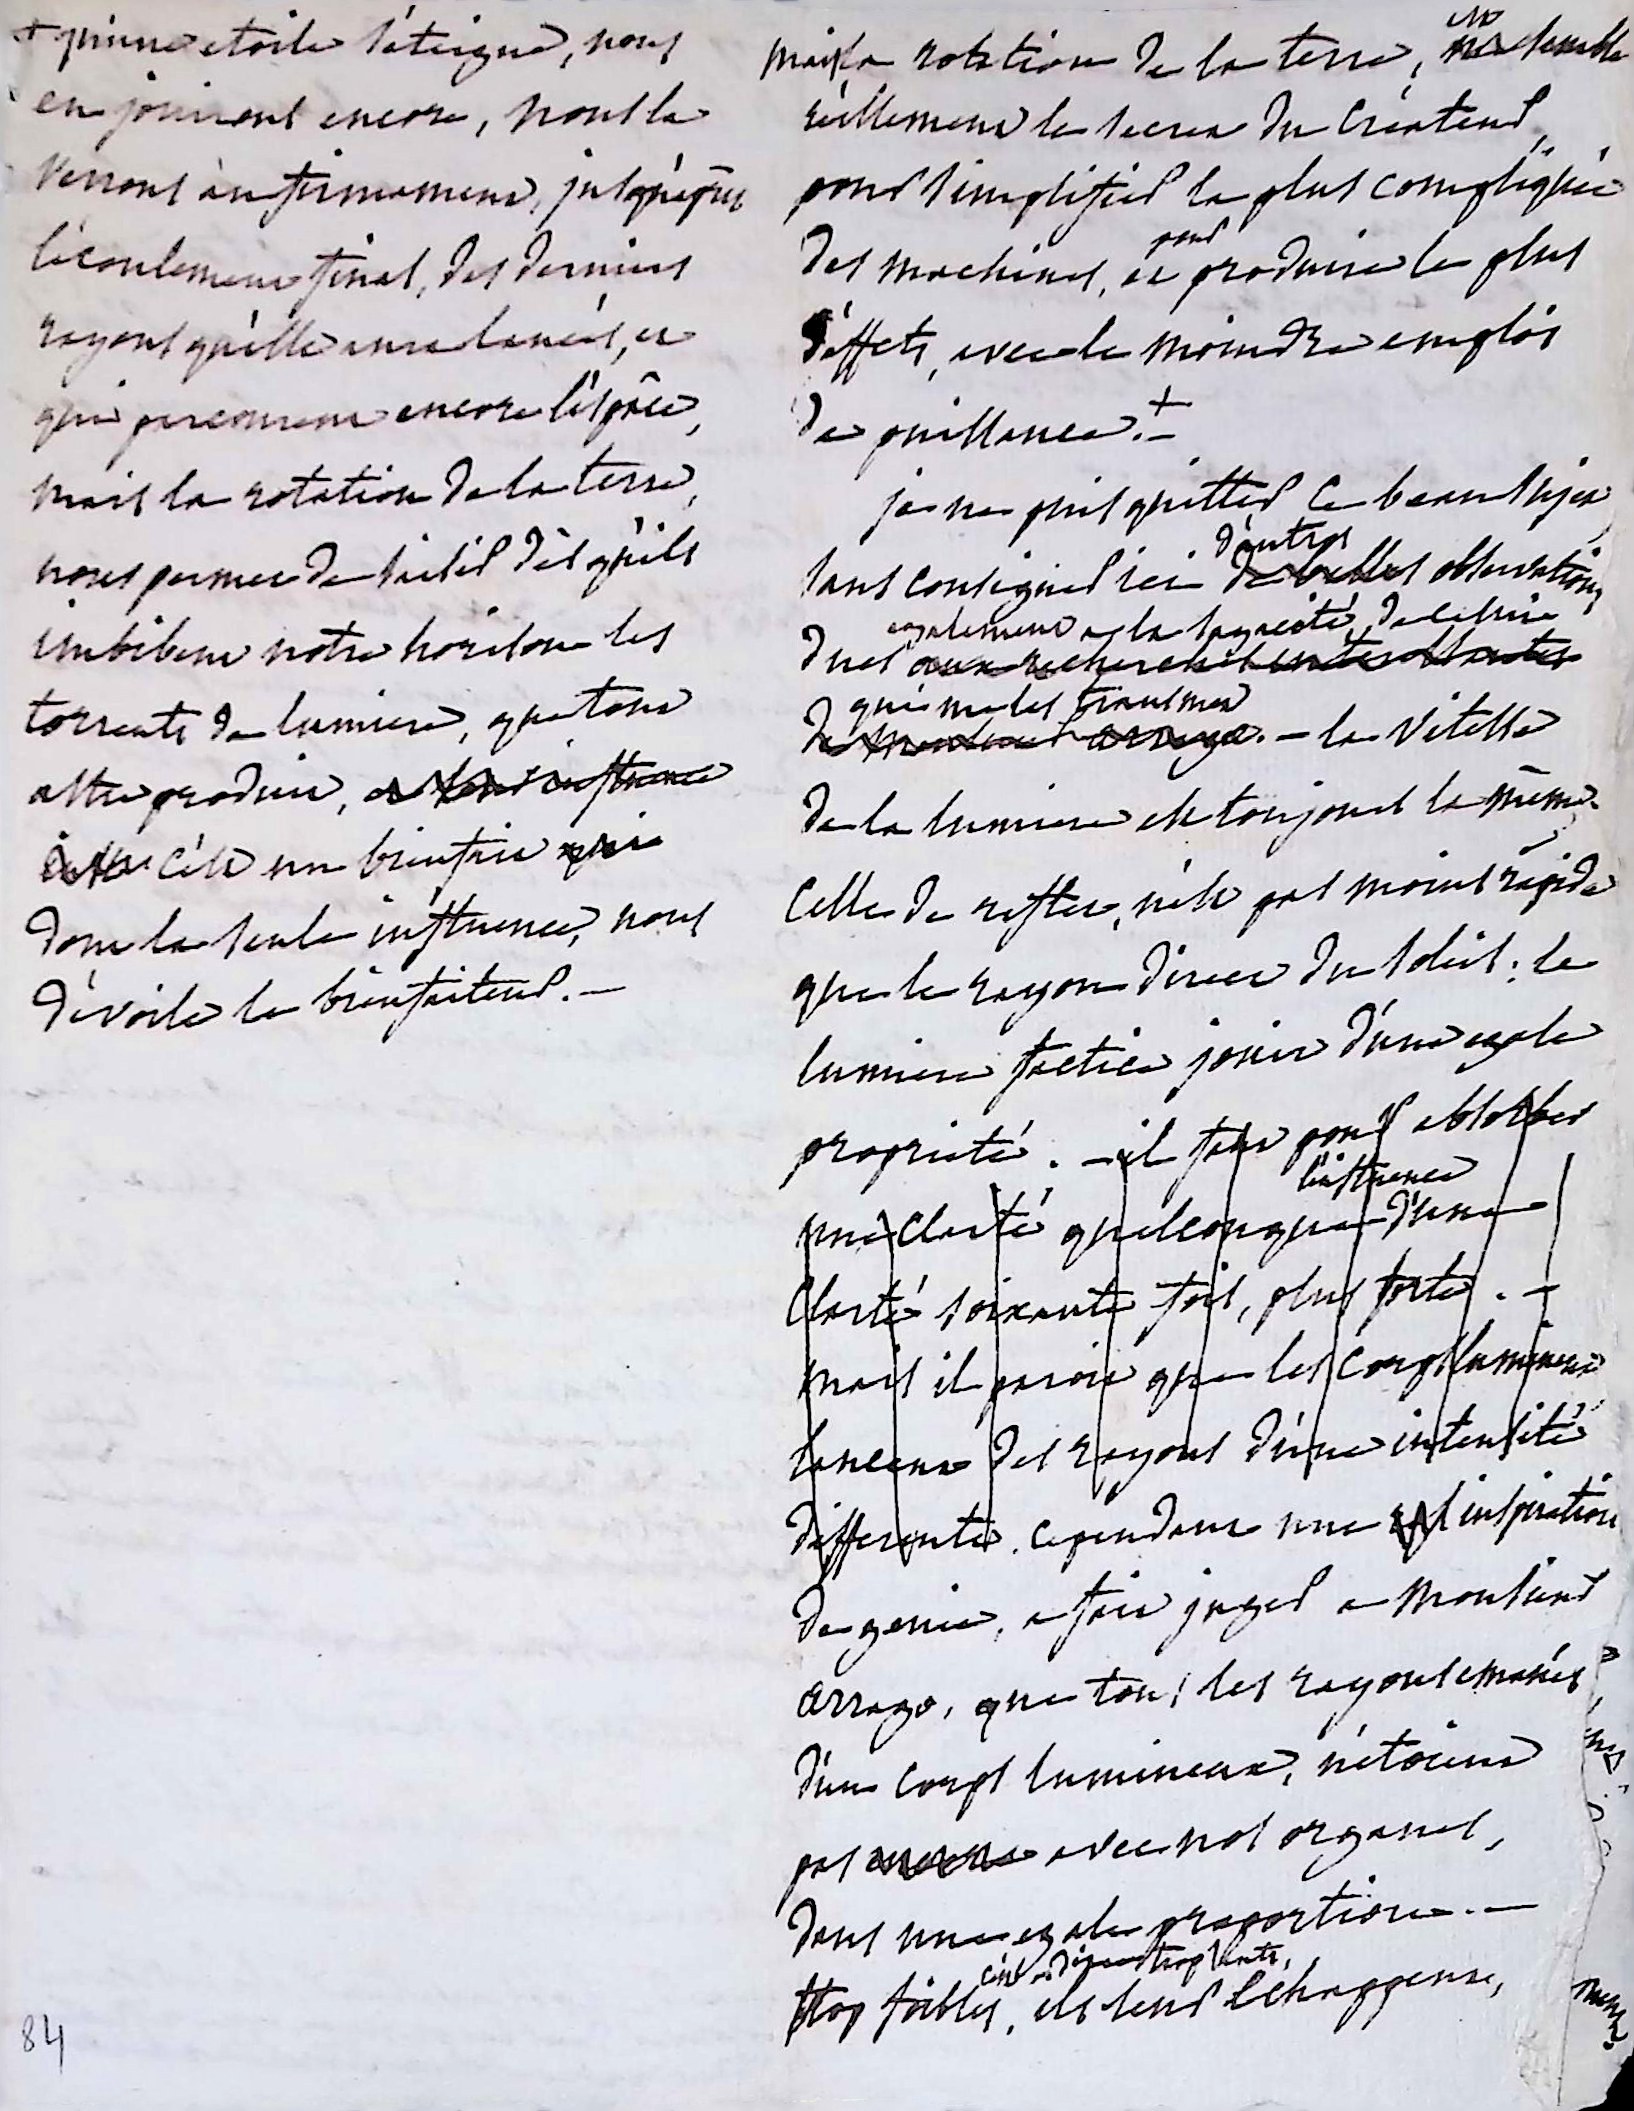 + qu'une etoile s'éteigne, nous
en jouirons encore, nous la
verrons au firmament, jusqu'à
l'écoulement final, des derniers
rayons qu'elle aura lancés, et
qui parcourent encore l'espâce,
mais la rotation de la terre,
nous permet de saisir dès qu'ils
imbibent notre horison les
torrents de lumiere, que tout
astre produit, et leur influence
c'est un bienfait qui
dont la seule influence, nous
dévoile le bienfaiteur. —
84
mais la rotation de la terre, en semble
réellement le secret du Créateur,
pour simplifier la plus compliquée
des machines, et pour produire le plus
d'effets, avec le moindre emploi
de puissance. +
je ne puis quitter ce beau sujet
sans consigner ici d'autres observations
de belles
egalement a la sagacité, de celui
dues aux recherches intéressantes
qui me les transmet
de monsieur arrago. — la vitesse
de la lumiere est toujours la même,
celle de reflet, n'est pas moins rapide
que le rayon direct du soleil. la
lumiere factice jouit d'une egale
proprieté. — il faut pour absorber
l'influence
une clarté quelconque d'une
clarté soixante fois, plus forte. —
mais il paroit que les corps lumineux
lancent des rayons d'une intensité
differente. cependant une inspiration
de genie, a fait juger a Monsieur
arrago, que tous les rayons emanés
d'un corps lumineux, n'étoient
pas avec nos organes,
dans une egale proportion. —
c'est a dire trop lents,
trop foibles, ils leur echappent,